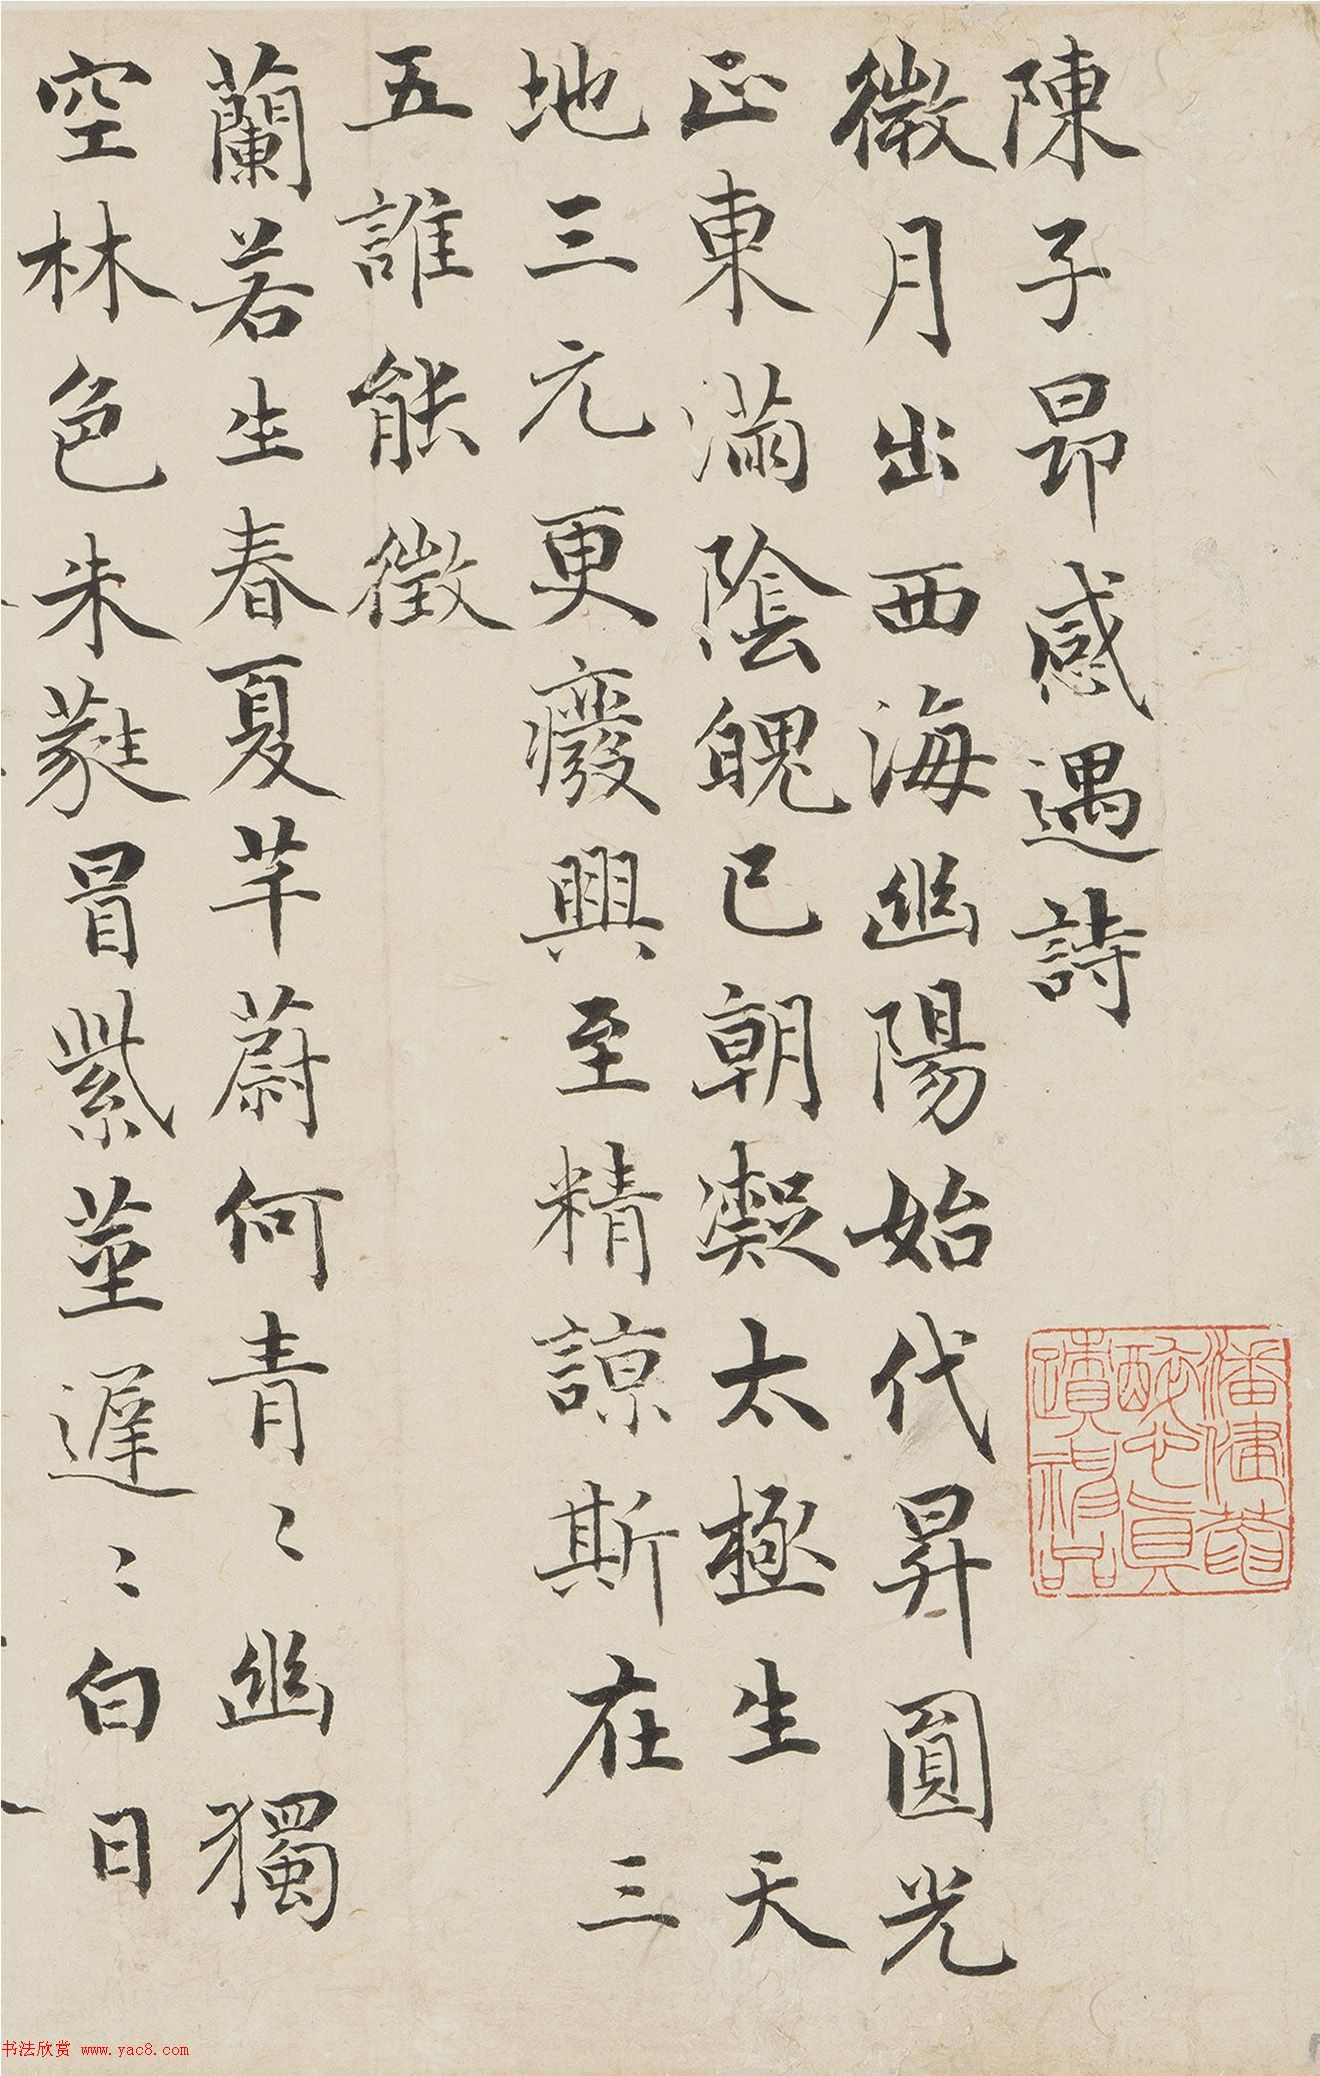 陳子昂感遇詩
微月出西海幽陽始代昇圓光
正東滿陰魄已朝凝太極生天
地三元更廢興至精諒斯在三
五誰能徵
蘭若生春夏芊蔚何青〻幽獨
空林色朱蕤冒紫莖遲〻白日
书法欣赏 www.yac8.com